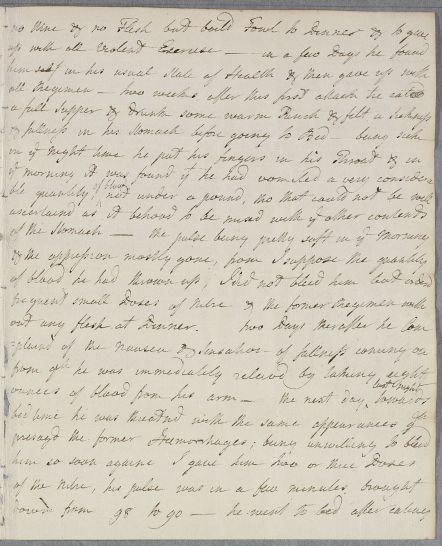 no Wine & no Flesh but boild Fowl to Dinner & to give
up with all Violent Exercise — in a few Days he found
him self in his usual State of Health & then gave up with
all Regimen — two weeks after this first attack he eat
a full Supper & Drunk some warm Punch & felt a sickness
& fullness in his Stomach before going to Bed — being sick
in ye Night time he put his fingers in his Throat & in
ye morning it was found yt he had vomited a very considera
ble quantity of blood, not under a pound, tho that could not be well
ascertaind as it behoved to be mixed with ye other contents
of the Stomach — the pulse being pretty soft in ye Morning
& the oppression mostly gone, from I suppose the quantity
of blood he had thrown up, I did not bleed him but
frequent small Doses of Nitre & the former Regimen with
out any flesh at Dinner. two Days therafter he Com
plaind of the Nausea & Sensation of fullness coming on
from qh he was immediately releived by taking eight
ounces of blood from his arm — the next day, last night, towards
bed time he was threatned with the same appearances qh
presagd the former Hæmorhages; being unwilling to bleed
him so soon againe I gave him two or three Doses
of the Nitre, his pulse was in a few minutes brought
down from 98 to 90 — he went to bed after eating